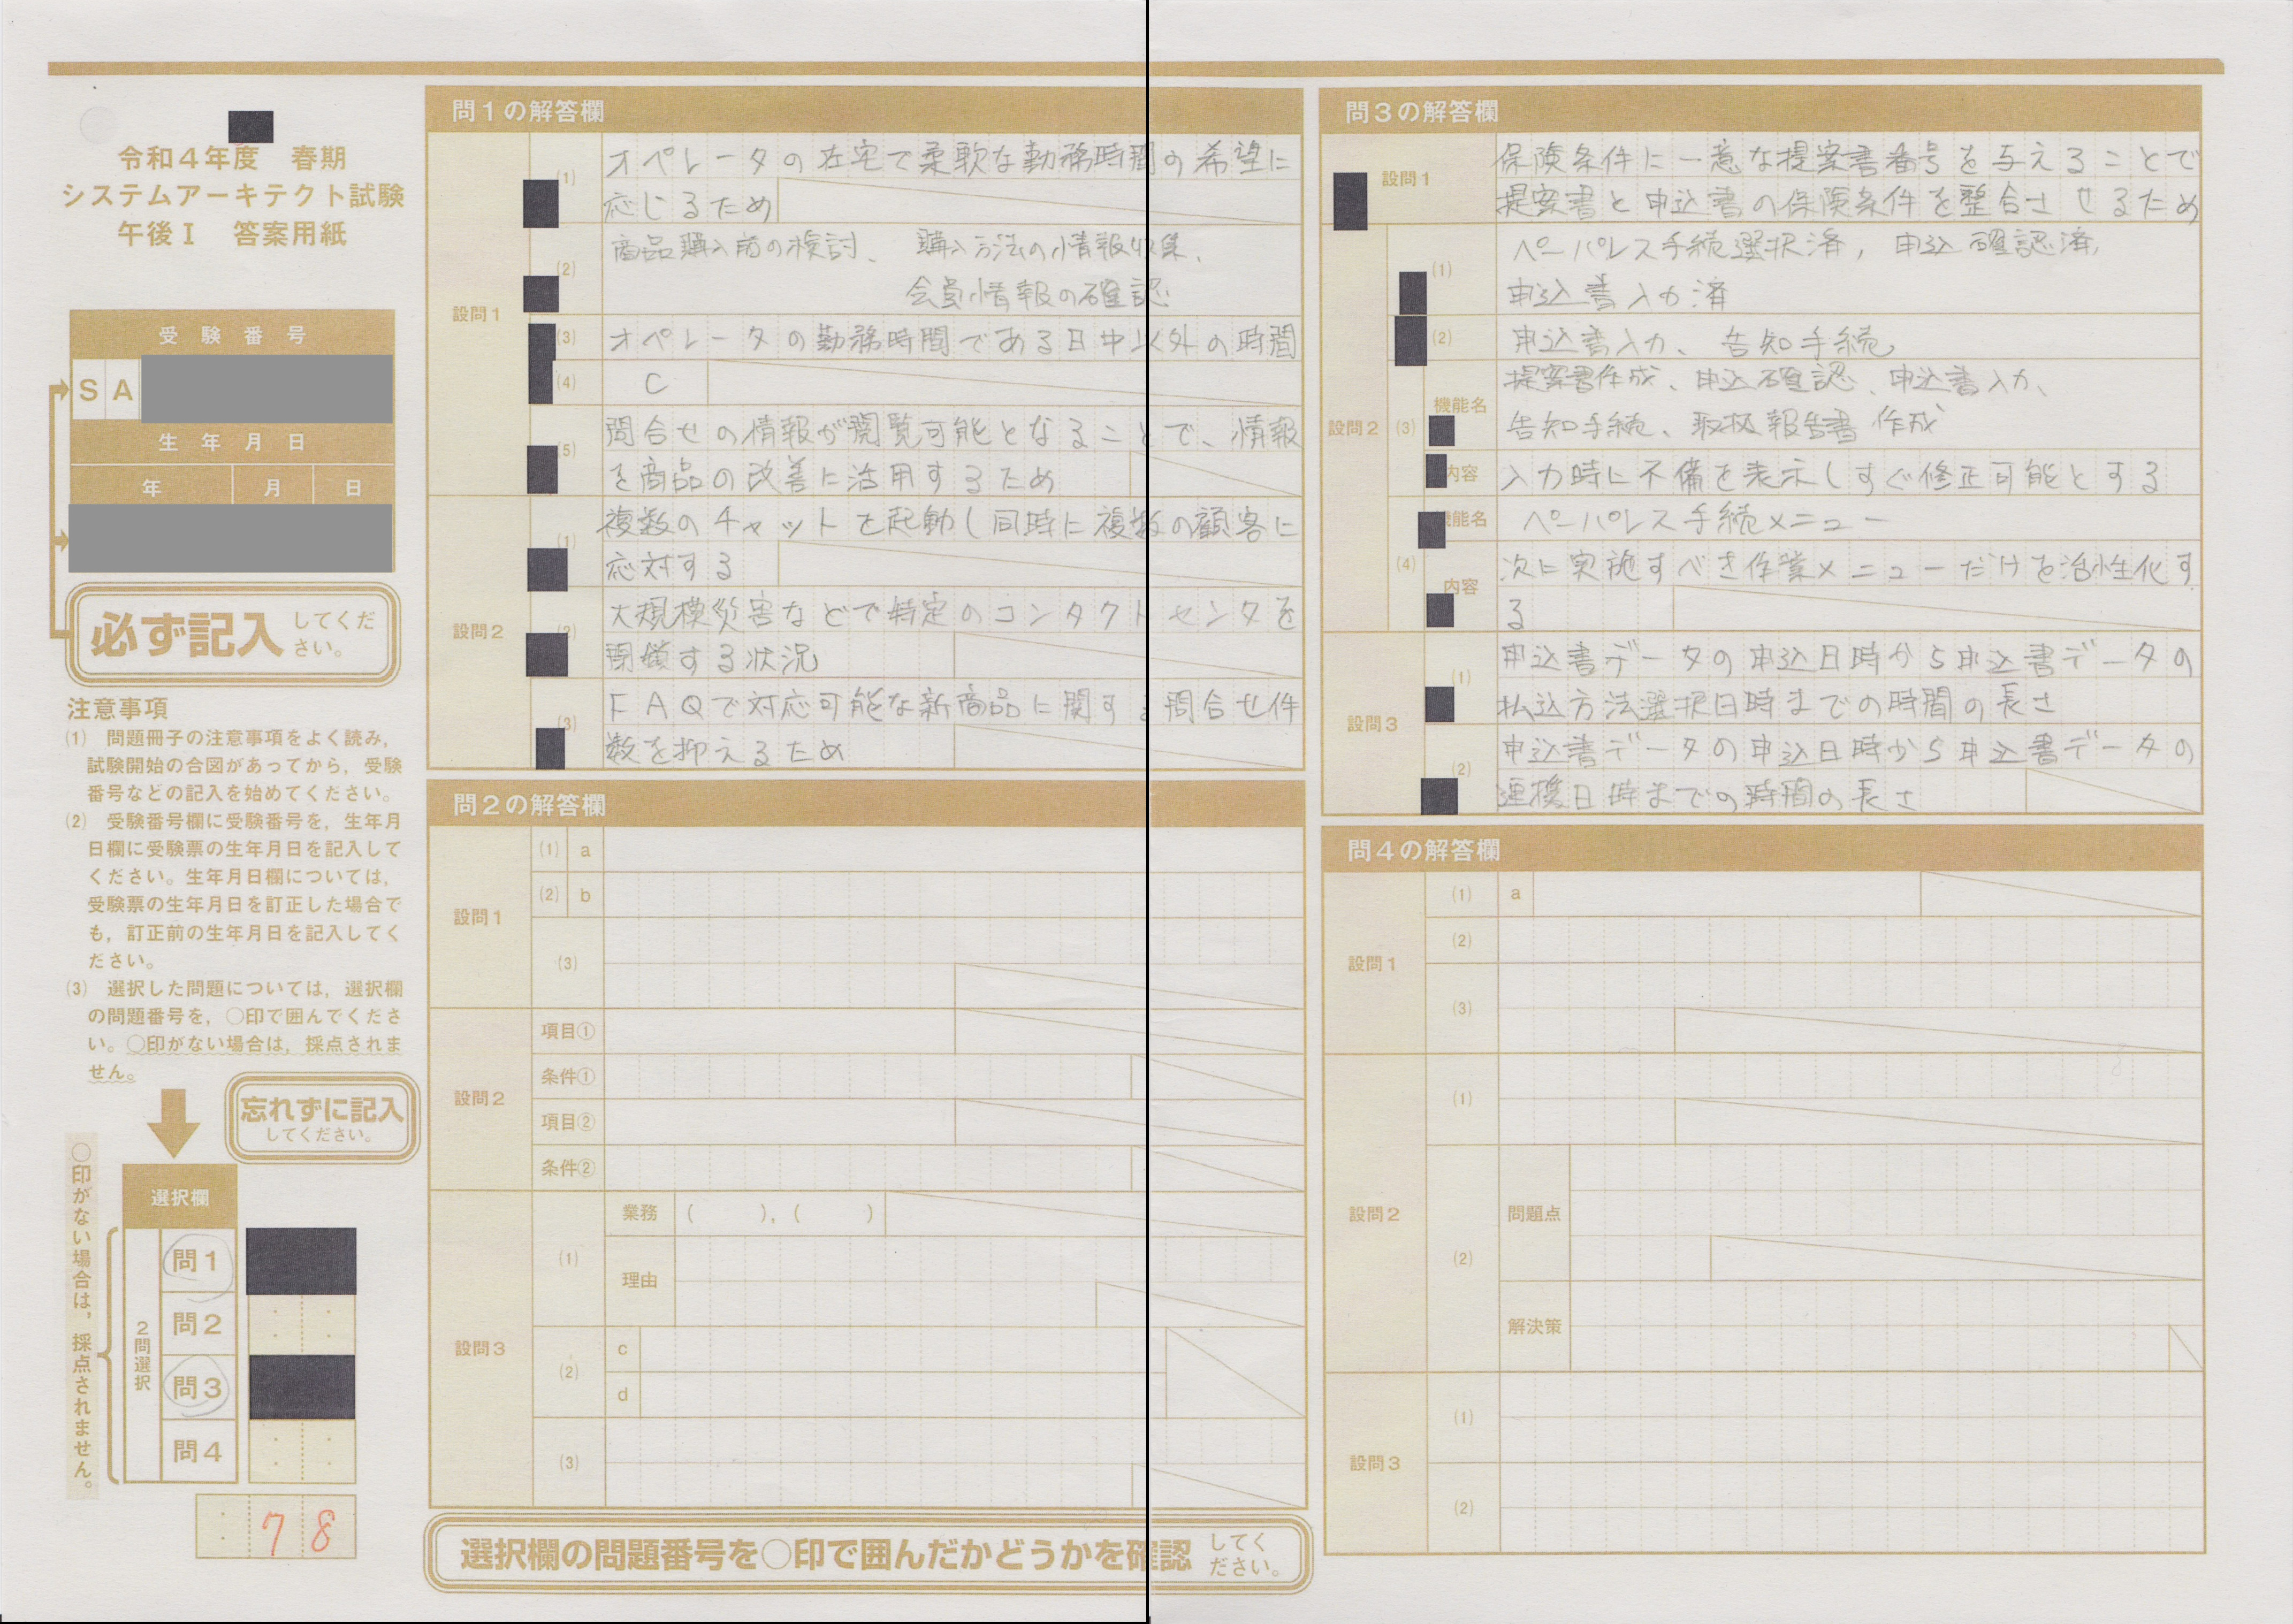 令和4年度 春期
システムアーキテクト試験
午後Ⅰ 答案用紙
受験番号
S A
生年月日
年 月 日
必ず記入してください。
注意事項
(1) 問題冊子の注意事項をよく読み,
試験開始の合図があってから,受験
番号などの記入を始めてください。
(2) 受験番号欄に受験番号を,生年月
日欄に受験票の生年月日を記入して
ください。生年月日欄については,
受験票の生年月日を訂正した場合で
も,訂正前の生年月日を記入してく
ださい。
(3) 選択した問題については,選択欄
の問題番号を,○印で囲んでくださ
い。○印がない場合は,採点されま
せん。
忘れずに記入
してください。
○印がない場合は,採点されません。
選択欄
2問選択
問1
問2
問3
問4
78
問1の解答欄
設問1
(1) オペレータの在宅で柔軟な勤務時間の希望に
応じるため
(2) 商品購入前の検討、 購入方法の情報収集、
会員情報の確認
(3) オペレータの勤務時間である日中以外の時間
(4) C
(5) 問合せの情報が閲覧可能となることで、情報
を商品の改善に活用するため
設問2
(1) 複数のチャットを起動し同時に複数の顧客に
応対する
(2) 大規模災害などで特定のコンタクトセンタを
閉鎖する状況
(3) FAQで対応可能な新商品に関する問合せ件
数を抑えるため
問2の解答欄
設問1
(1) a
(2) b
(3)
設問2
項目①
条件①
項目②
条件②
設問3
(1) 業務 ( ), ( )
理由
(2) c
d
(3)
選択欄の問題番号を○印で囲んだかどうかを確認してください。
問3の解答欄
設問1 保険条件に一意な提案書番号を与えることで
提案書と申込書の保険条件を整合させるため
設問2
(1) ペーパレス手続選択済, 申込確認済,
申込書入力済
(2) 申込書入力、告知手続
(3) 機能名 提案書作成、申込確認、申込書入力、
告知手続、取扱報告書作成
内容 入力時に不備を表示しすぐ修正可能とする
(4) 機能名 ペーパレス手続メニュー
内容 次に実施すべき作業メニューだけを活性化す
る
設問3
(1) 申込書データの申込日時から申込書データの
払込方法選択日時までの時間の長さ
(2) 申込書データの申込日時から申込書データの
連携日時までの時間の長さ
問4の解答欄
設問1
(1) a
(2)
(3)
設問2
(1)
(2) 問題点
解決策
設問3
(1)
(2)